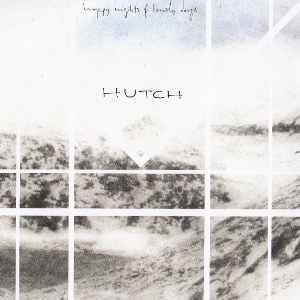 happy nights & lonely days
HUTCH